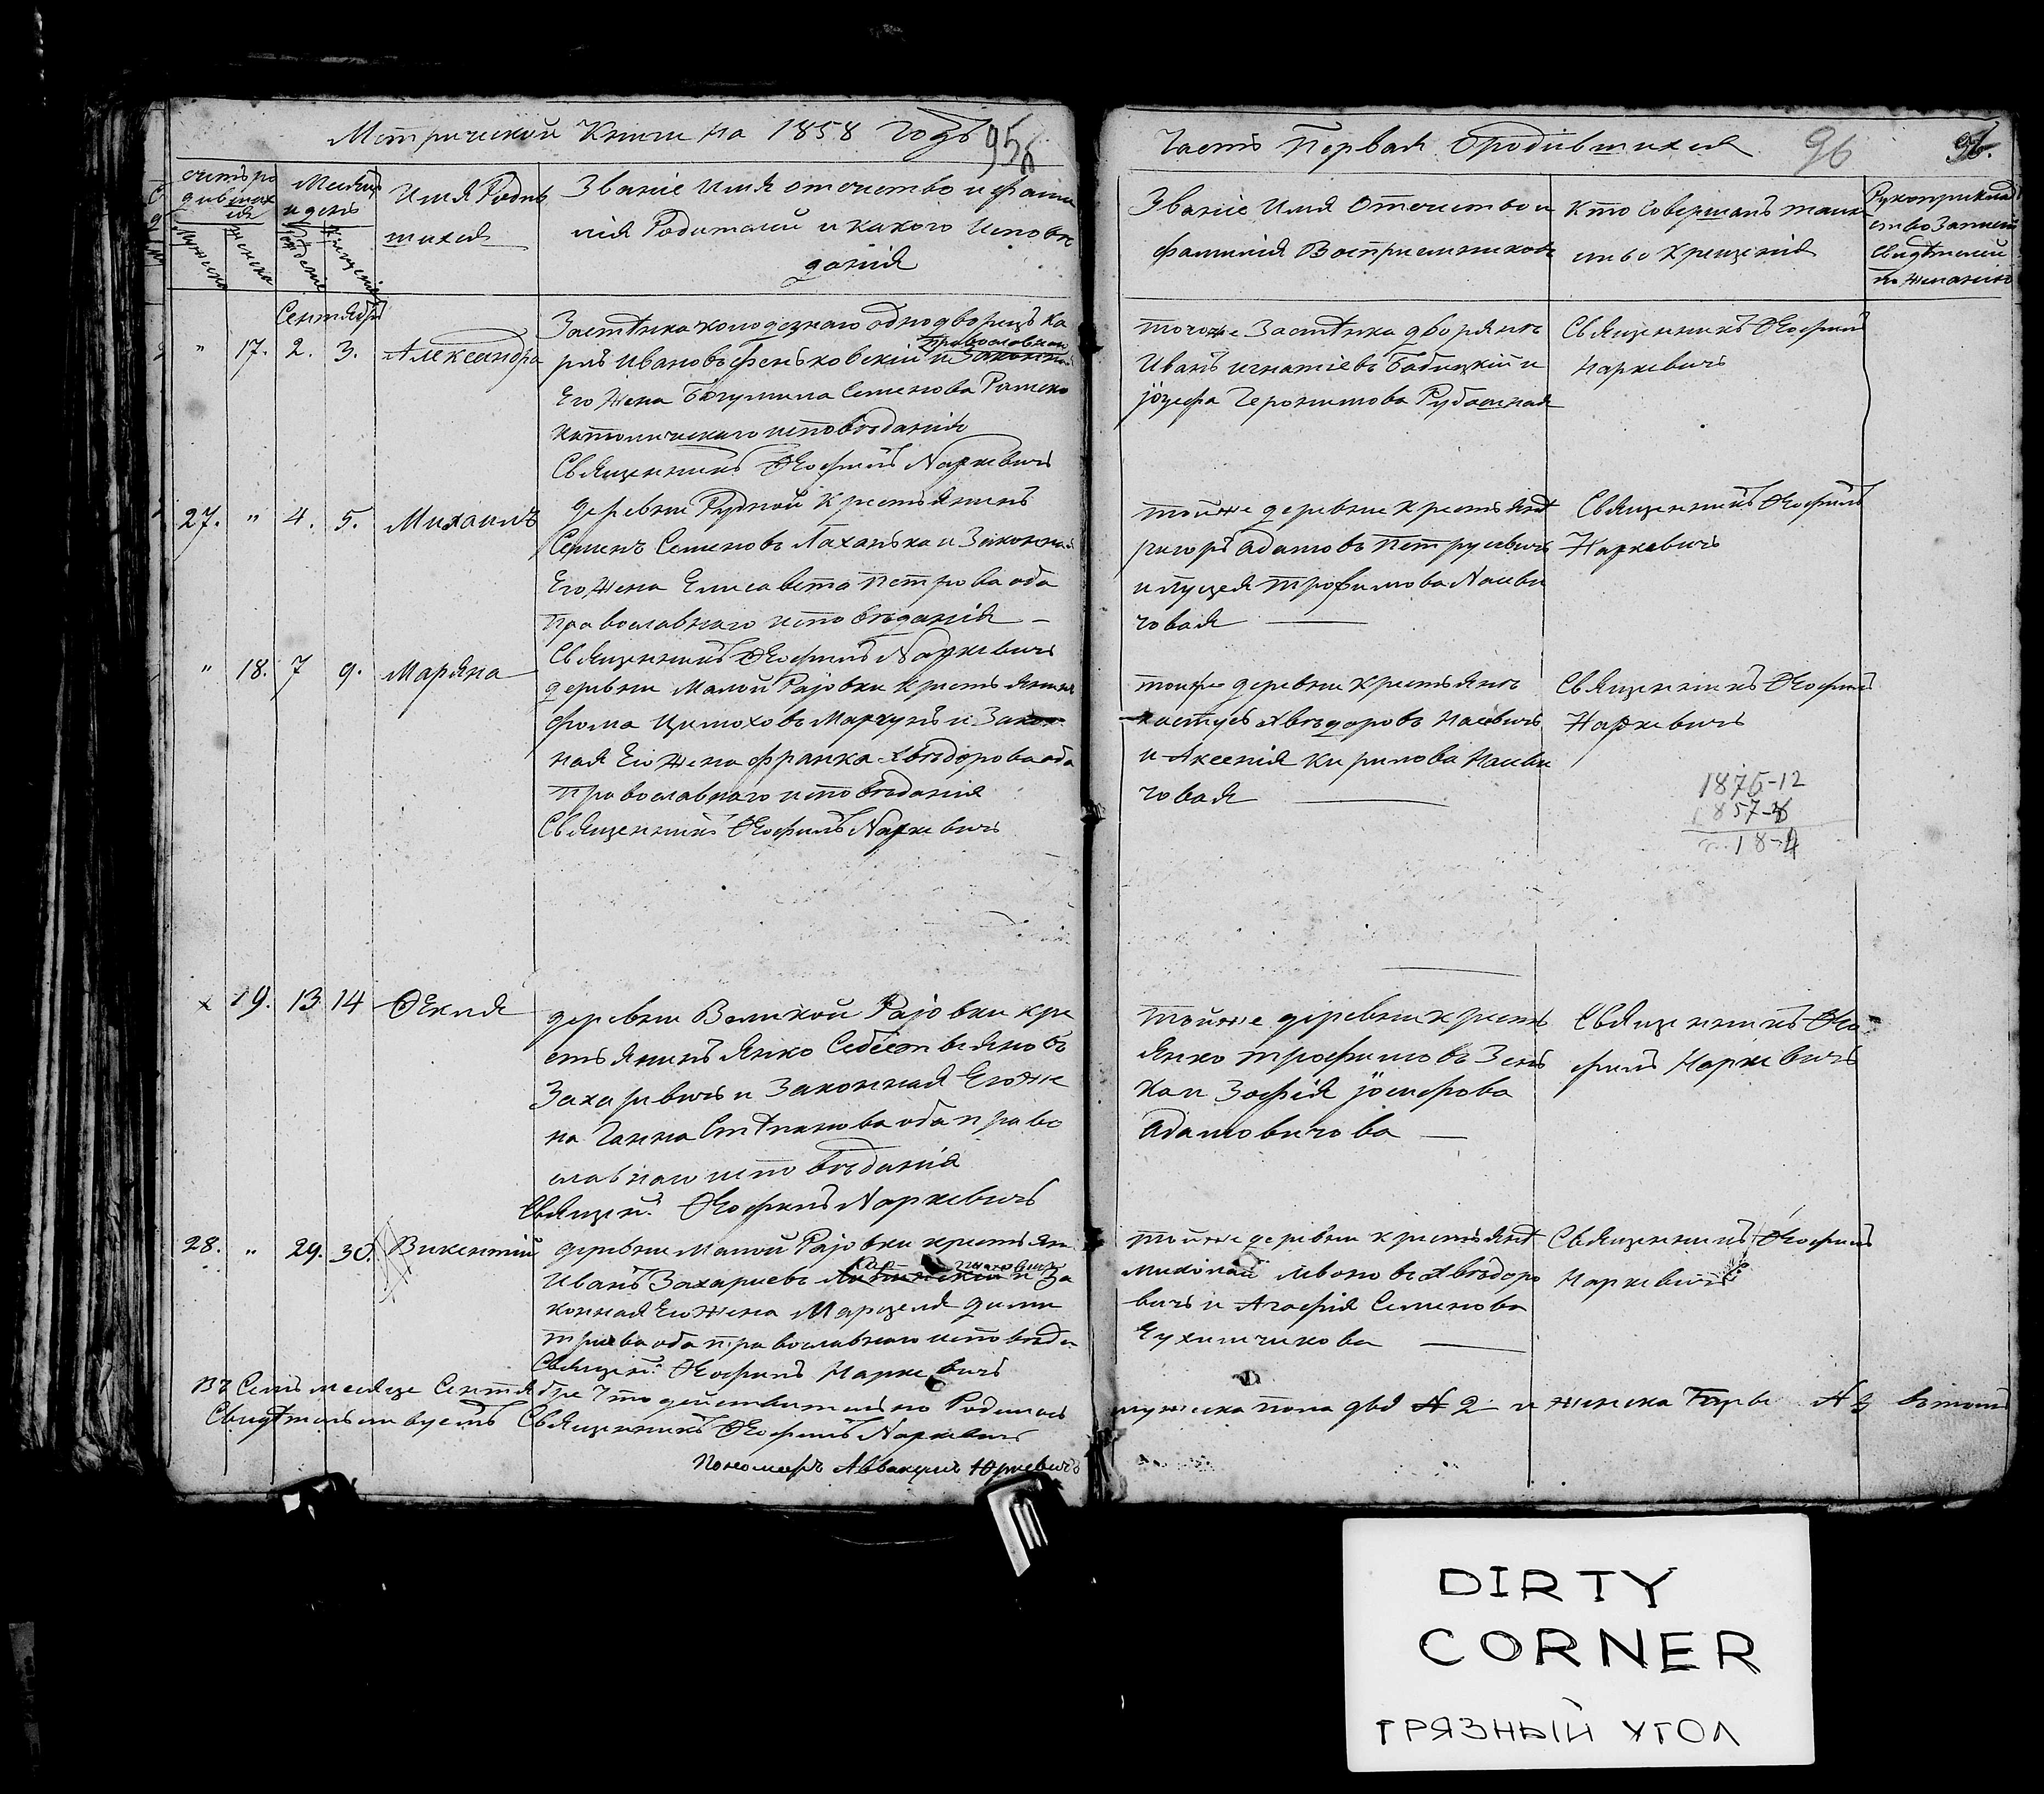 Метрической Книги на 1858 годъ
95
Часть Первая О родившихся
96
96.
Счетъ ро
дившах
ся
Мужеска
Женска
Месяцъ
и день
Рожденіе
Крещеніе
Имя Родив
шихся
Званіе Имя отечество и фами
лія Родителей и какого Исповѣ
данія
Званіе Имя Отечество и
фамилія Воспріемниковъ
Кто Совершалъ таин
ство Крещенія
Рукоприклад
ство Записей
Свидѣтелей
по желанію
Сентябрь
" 17. 2. 3. Александра
Застѣнка однодворецъ Ка
Православнаго
ръ Ивановъ Феньковскій и Законная
Его Жена Богумила Семенова Римско
католическаго исповѣданія
Священникъ Ѳеофилъ Наркевичъ
того же Застѣнка дворянъ
Иванъ Игнатіевъ Бабицкій и
Іозефа Героншмова Рубовская
Священникъ Ѳеофилъ
Наркевичъ
27. " 4. 5. Михаилъ
деревни Рудной Крестьянинъ
Семенъ Семеновъ Лаханька и Законная
Его Жена Елисавета Петрова оба
православнаго исповѣданія —
Священникъ Ѳеофилъ Наркевичъ
тойже деревни крестьянѣ
Адамовъ Петрусевичъ
и Луцея Трофимова
човая
Священникъ Ѳеофилъ
Наркевичъ
" 18. 7 9. Маряна
деревни Малой Раіовки крестьянинъ
Фома Цимоховъ Марчукъ и Закон
ная Его Жена Франка Хвѣдорова оба
православнаго исповѣданія
Священникъ Ѳеофилъ Наркевичъ
тойже деревни крестьянъ
Кастусь Хвѣдоровъ
и Аксенія Кирилова
човая
Священникъ Ѳеофилъ
Наркевичъ
1875-12
1857-8
18-4
x 19. 13 14 Ѳекля
деревни Великой Раіовки кре
стьянинъ Янко Себестьяновъ
Захаревичъ и Законная Его же
на Ганна Стѣпанова оба право
славнаго исповѣданія
Священ. Ѳеофилъ Наркевичъ
тойже деревни крест
Янко Трофимовъ Зень
ка и Зофія Іосифова
Адамовичова —
Священникъ Ѳео
филъ Наркевичъ
28. " 29. 30. Викентій
деревни Малой Раіовки крестьян
Иванъ Захариевъ и За
конная Его Жена Марцеля Дими
триева оба православнаго исповѣда
Священ. Ѳеофилъ Наркевичъ
тойже деревни крестьянѣ
Миколай Хвѣдоро
вичъ и Агафія Семенова
Священникъ Ѳеофилъ
Наркевичъ
Въ Семъ месяце Сентябре Что действительно Родилось
мужеска пола два № 2 и женска Три № 3 въ томъ
Свидѣтельствуетъ Священникъ Ѳеофилъ Наркевичъ
Пономарь Аввакумъ Юркевичъ
DIRTY
CORNER
ГРЯЗНЫЙ УГОЛ